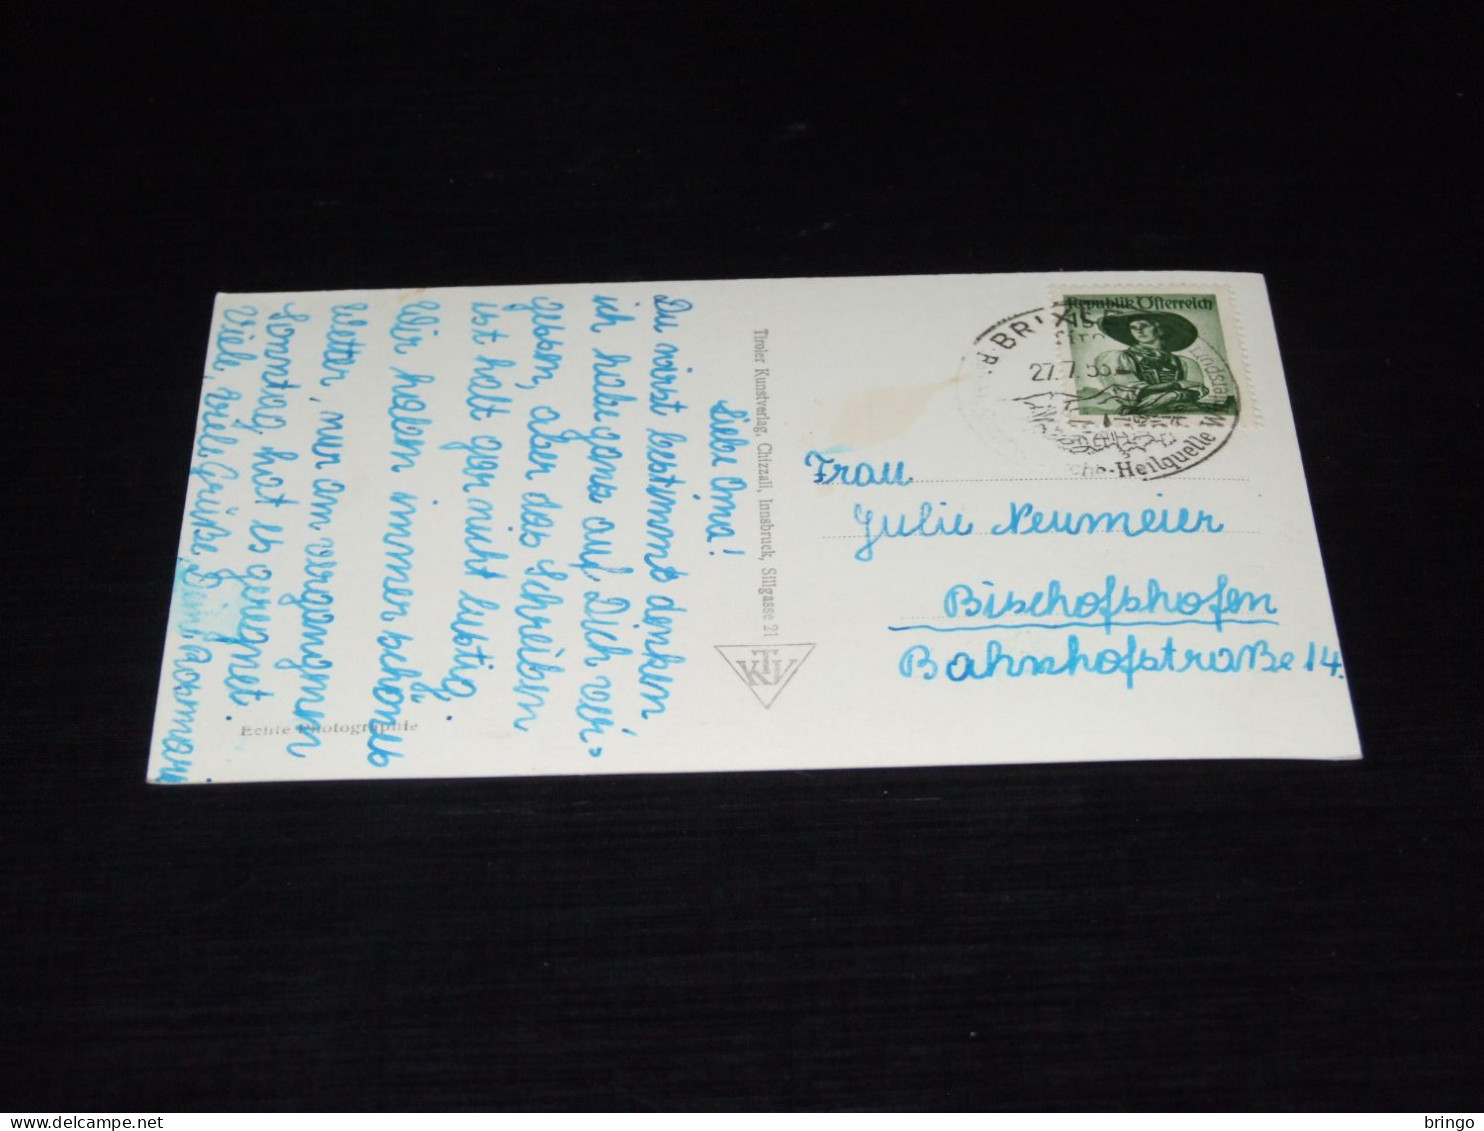 Liebe Oma!
Du wirst bestimmt denken
ich habe ganz auf Dich ver=
gessen, aber das Schreiben
ist halt gar nicht lustig.
Wir haben immer schönes
Wetter, nur am vergangenen
Sonntag hat es geregnet.
Viele, viele Grüße Dein
Echte Photographie
Tiroler Kunstverlag, Chizzali, Innsbruck, Sillgasse 21
KTV
Republik Österreich
BRIXL
27.7.53
Heilquelle
Frau
Julie Neumeier
Bischofshofen
Bahnhofstraße 14.
bringo